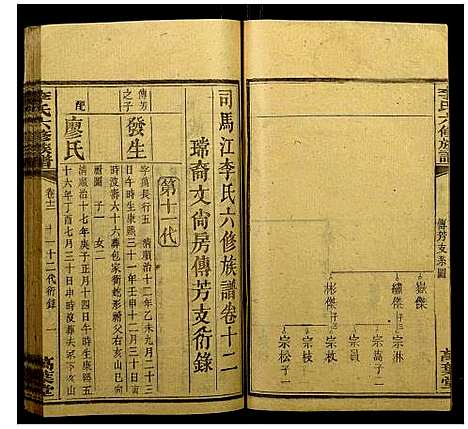 李氏六修族譜
傳芳支系圖
嶽傑
宗淋
宗嵩子一
宗枚
彬傑
宗枝
宗松子一
萬葉堂
司馬江李氏六修族譜卷十二
瑞裔文尙房傳芳支衍錄
第十一代
傳芳
之子
發生
字
長行五
清順治十二年乙未九月二十三
日午時生康熙三十一年壬申十二月三十日亥
時沒壽
六十六葬包家衖蛇形祔父右亥山巳向
子一
女二
配
廖氏
清順治十七年庚子正月十四日午時生康熙五
十六年丁酉七月三十日申時沒
李氏六修族譜
卷十二
十一
十二代衍錄
一
萬葉堂